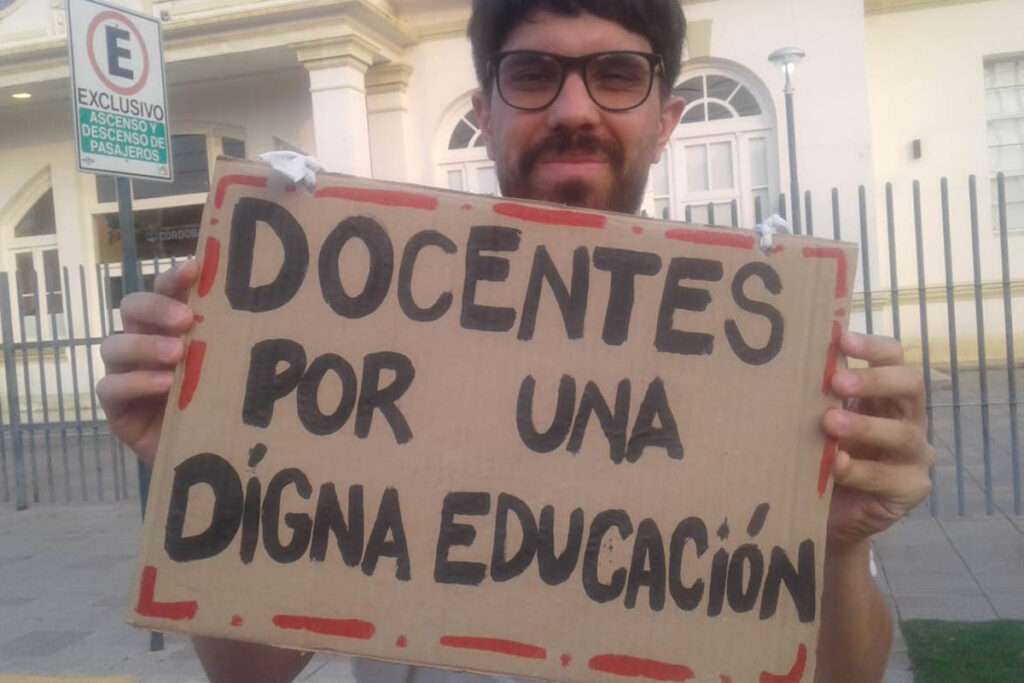 E
EXCLUSIVO
ASCENSO Y
DESCENSO DE
PASAJEROS
CÓRDOBA
DOCENTES
POR UNA
DÍGNA EDUCACIÓN